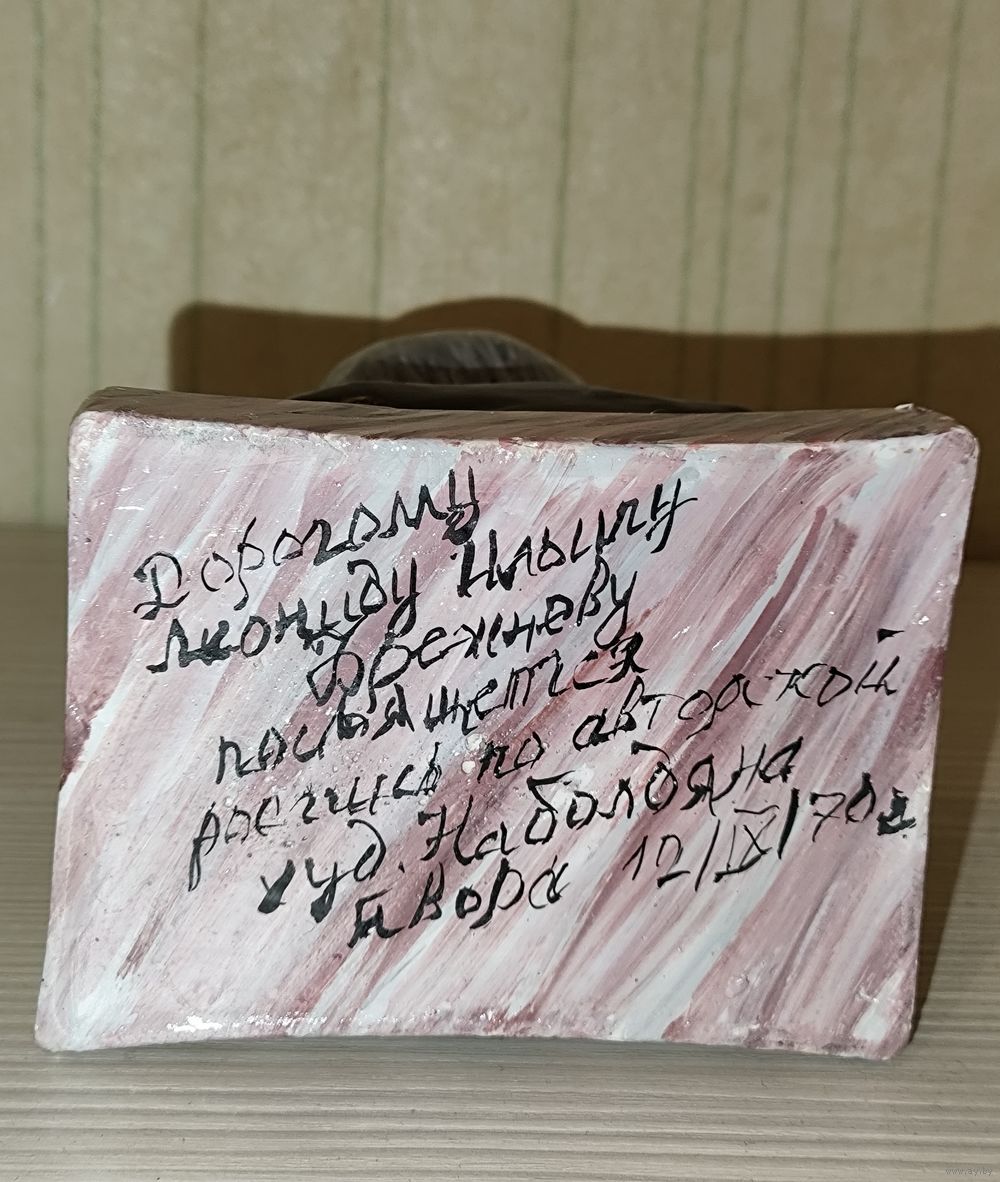 Дорогому
Леониду Ильичу
Брежневу
посвящется
роспись по авторской
худ. Наболдяна
Явора 12/IX/70г
www.ay.by